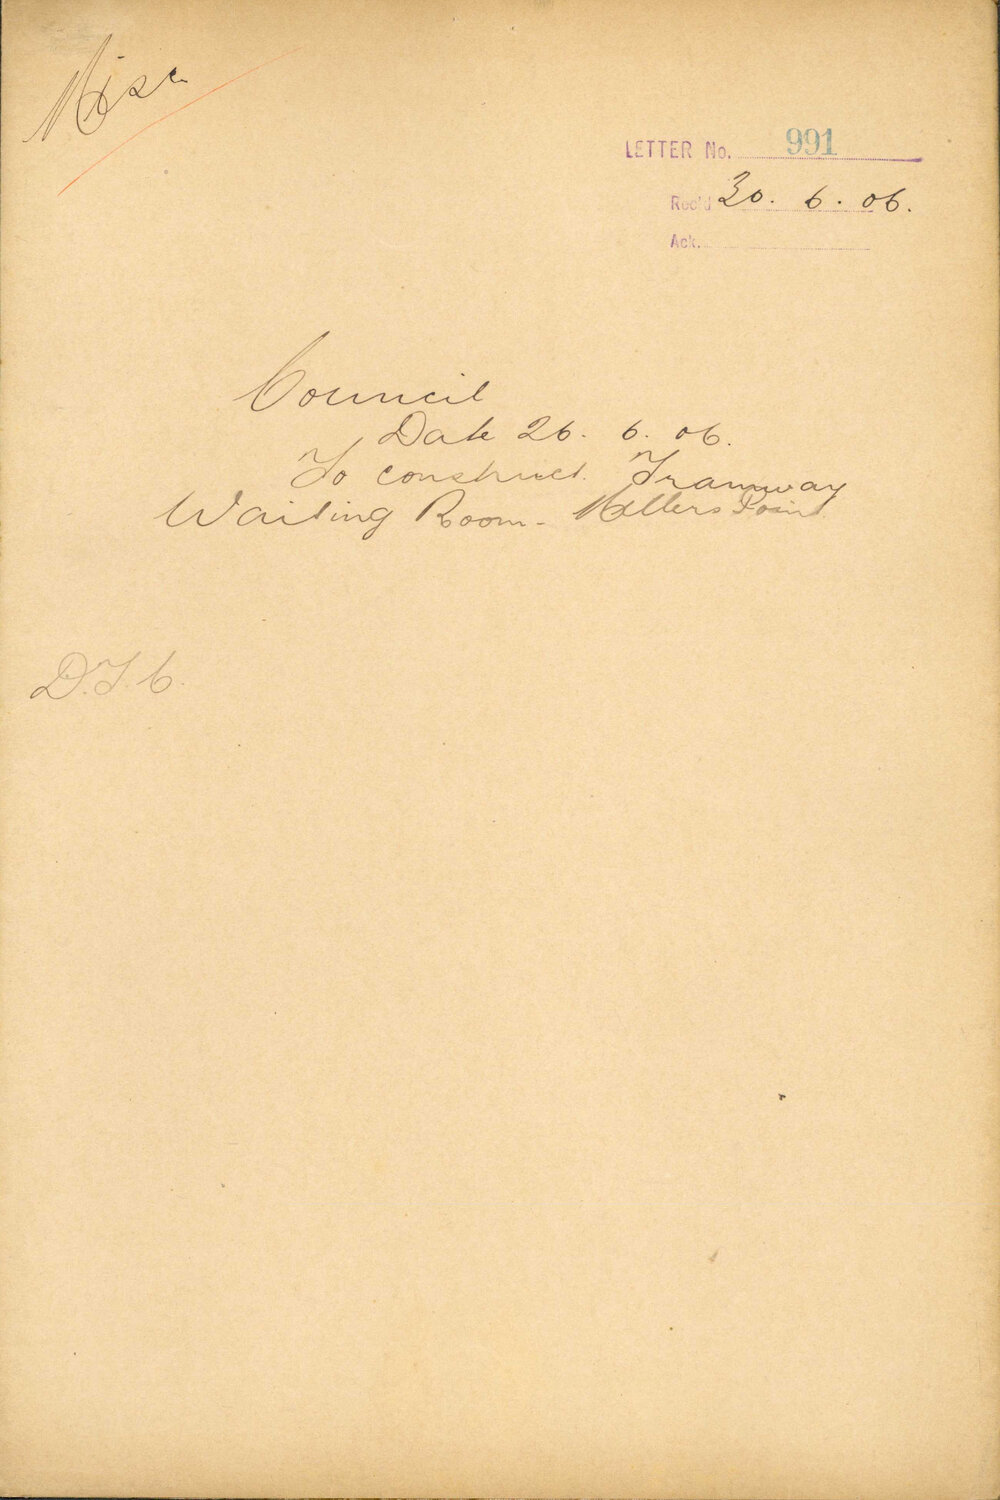 Misc
LETTER No. 991
Rec'd 30. 6. 06.
Ack.
Council
Date 26. 6. 06.
To construct Tramway
Waiting Room - Millers Point
D.T.C.